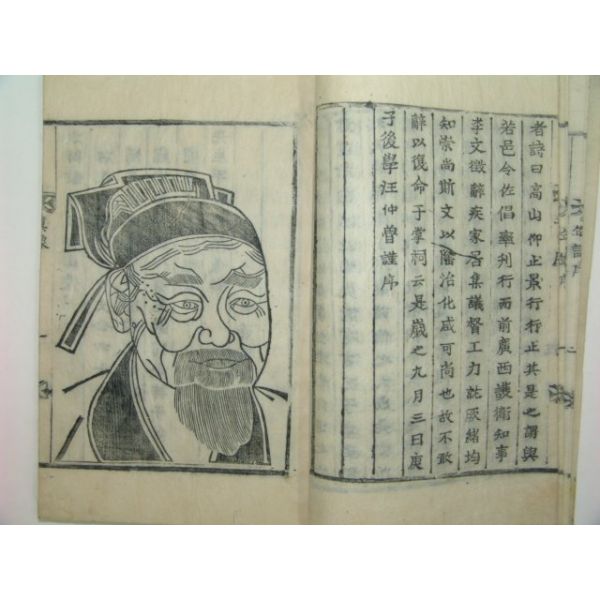 年譜序
者詩曰高山仰止景行行止其是之謂與
若邑令佐倡率刊行而前廣西護衛知事
李文徵辭疾家居集議督工力誌厥緒均
知崇尚斯文以陰治化咸可尚也故不敢
辭以復命于掌祠云是歲之九月三日庚
子後學汪仲魯謹序